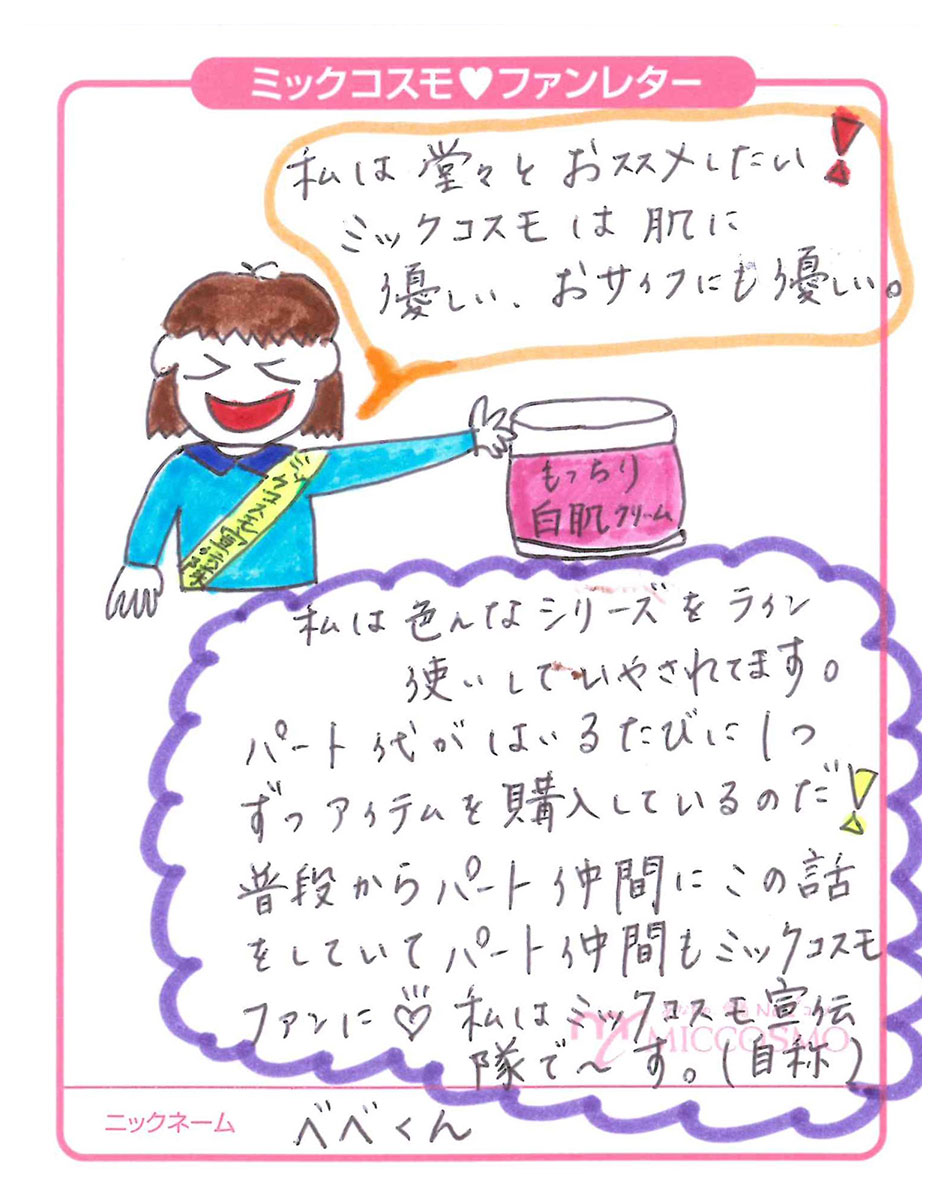 ミックコスモ♥ファンレター
私は堂々とおススメしたい!
ミックコスモは肌に
優しい、おサイフにも優しい。
もっちり
白肌クリーム
私は色んなシリーズをライン
使いしていやされてます。
パート代がはいるたびに1つ
ずつアイテムを購入しているのだ!
普段からパート仲間にこの話
をしていてパート仲間もミックコスモ
ファンに♡私はミックコスモ宣伝
隊で〜す。(自称)
MICCOSMO
ニックネーム べべくん